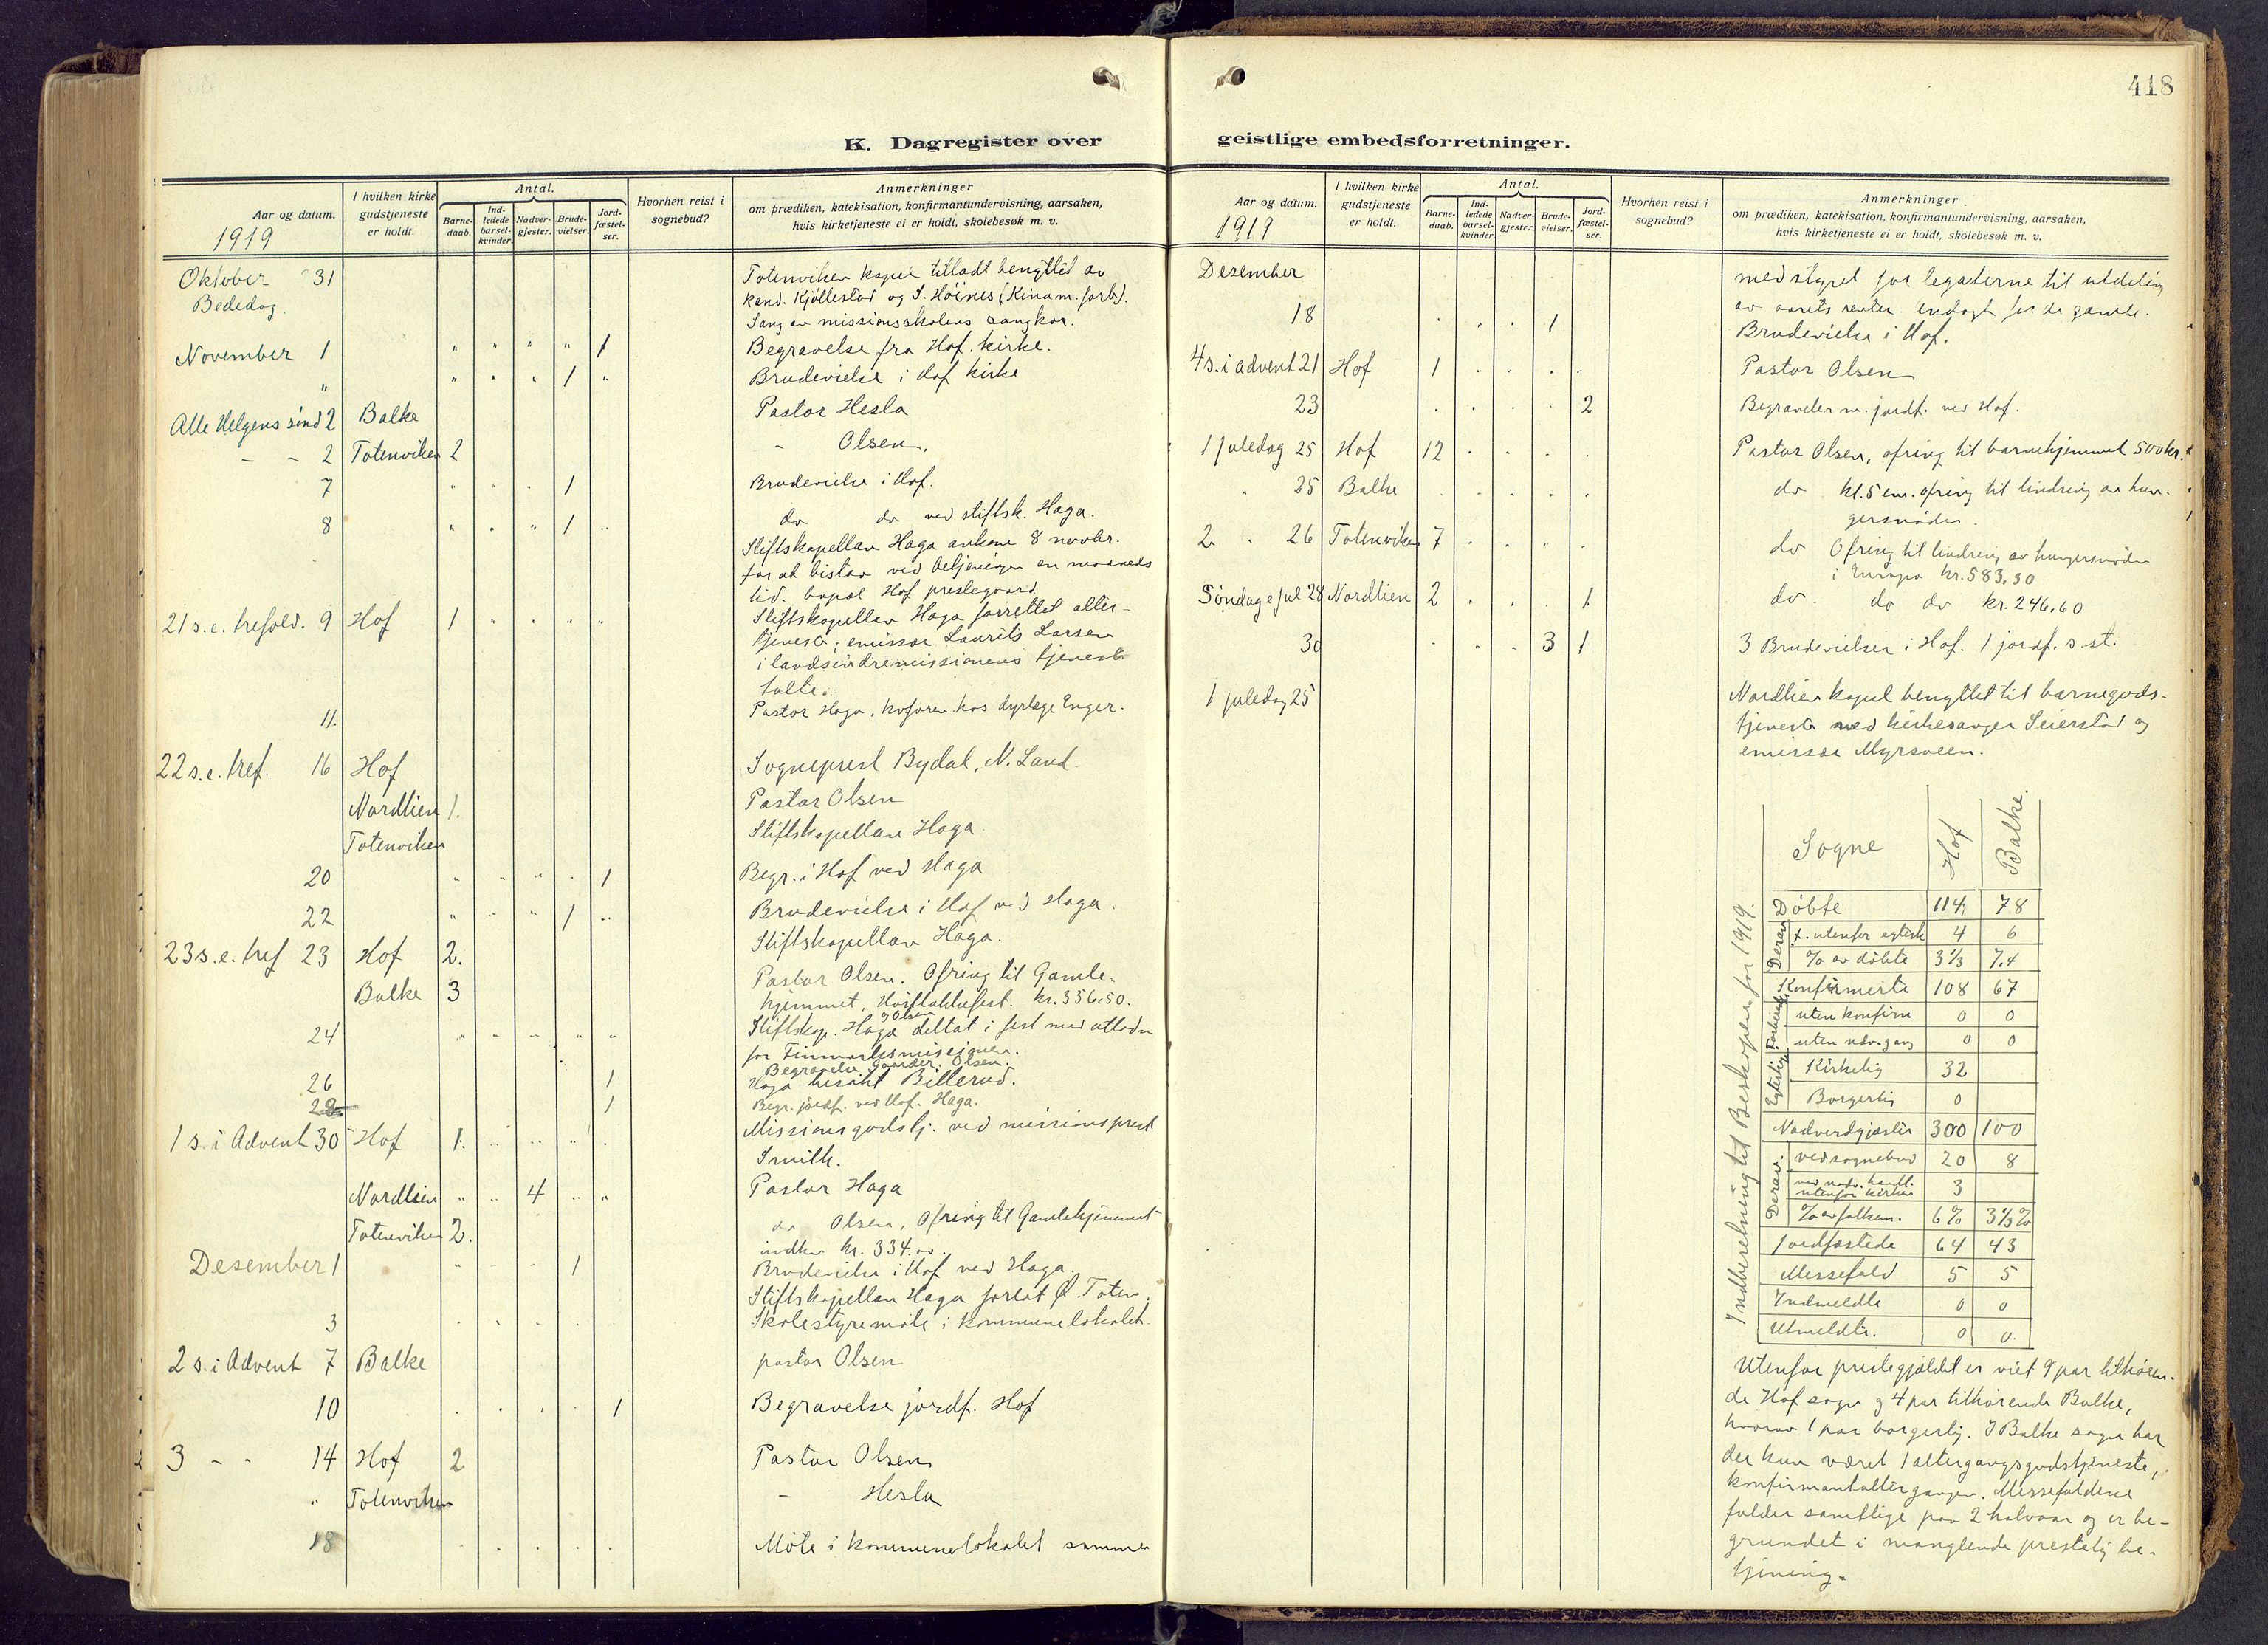 418
K. Dagregister over
geistlige embedsforretninger.
Aar og datum.
1919
I hvilken kirke gudstjeneste er holdt.
Antal.
Barne-daab.
Ind-ledede barsel-kvinder.
Nadver-gjester.
Brude-vielser.
Jord-fæstel-ser.
Hvorhen reist i sognebud?
Anmerkninger
om prædiken, katekisation, konfirmantundervisning, aarsaken,
hvis kirketjeneste ei er holdt, skolebesøk m. v.
Oktober 31 Totenviken kapel tillatt benyttet av
Bededag. kand. Kjøllestad og S. Höines (Kinam.forb.).
Sang av missionsskolens sangkor.
November 1 " " " " 1 Begravelse fra Hof kirke.
" " " " 1 " Brudevielse i Hof kirke
Alle Helgens sønd 2 Balke Pastor Hesla
- - 2 Totenviken 2 - Olsen.
7 " " " 1 Brudevielse i Hof.
8 " " " 1 " do do ved stiftsk. Haga.
Stiftskapellan Haga ankom 8 novbr.
for at bistaa ved betjeningen en maaneds
tid. bopæl Hof prestegaard.
21 s. e. trefold. 9 Hof 1 " " " " Stiftskapellan Haga forrettet alter-
tjeneste; emissær Laurits Larsen
i landsindremissionens tjeneste
talte.
11. Pastor Haga, hos dyrlæge Enger.
22 s. e. tref. 16 Hof Sogneprest Bydal, N. Land.
Nordlien 1. Pastor Olsen
Totenviken Stiftskapellan Haga.
20 " " " " 1 Begr. i Hof ved Haga
22 " " " 1 " Brudevielse i Hof ved Haga.
23 s. e. tref 23 Hof 2. Stiftskapellan Haga.
Balke 3 Pastor Olsen. Ofring til Gamle-
hjemmet, Høsttakkefest. kr. 356.50.
24 " " " " " Stiftskap. Haga og Olsen deltat i fest med utlodn
for Finmarksmisjonen.
Begravelse Gaarder. Olsen.
26 1 Haga besøkt Billerud.
28 1 Begr. jordf. ved Hof. Haga.
1 s. i Advent 30 Hof 1. " " " " Missionsgudstj. ved missionsprest
Smith.
Nordlien " " 4 " " Pastor Haga
Totenviken 2. do Olsen, Ofring til Gamlehjemmet
indkom kr. 334.00.
Desember 1 " " " 1 Brudevielse i Hof ved Haga.
Stiftskapellan Haga forlot Ø. Toten.
3 Skolestyremöte i kommunelokalet.
2 s. i Advent 7 Balke pastor Olsen
10 1 Begravelse jordf. Hof
3 - - 14 Hof 2 Pastor Olsen
" Totenviken - Hesla
18 Möte i kommunelokalet sammen
Aar og datum.
1919
I hvilken kirke gudstjeneste er holdt.
Antal.
Barne-daab.
Ind-ledede barsel-kvinder
Nadver-gjester.
Brude-vielser.
Jord-fæstel-ser.
Hvorhen reist i sognebud?
Anmerkninger.
om prædiken, katekisation, konfirmantundervisning, aarsaken,
hvis kirketjeneste ei er holdt, skolebesøk m. v.
Desember med styret for legaterne til utdeling
av aarets renter for de gamle.
18 1 Brudevielse i Hof.
4 s. i advent 21 Hof 1 Pastor Olsen
23 2 Begravelser m. jordf. ved Hof.
1 juledag 25 Hof 12 Pastor Olsen, ofring til barnehjemmet 500 kr.
" 25 Balke do kl. 5 em. ofring til lindring av hun-
gersnöden.
2 " 26 Totenviken 7 do Ofring til lindring av hungersnöden
i Europa kr. 583.30
Söndag e jul 28 Nordlien 2 1 do. do do kr. 246.60
30 3 1 3 Brudevielser i Hof. 1 jordf. s. st.
1 juledag 25 Nordlien kapel benyttet til barneguds-
tjeneste ved kirkesanger Seierstad og
emissær Myrsveen.
Indberetning til Biskopen for 1919.
Sogne Hof Balke.
Döbte 114 78
Derav f. utenfor egtesk 4 6
% av döbte 3 1/3 7.4
Konfirmerte 108 67
Forbered. uten konfirm 0 0
uten ndv.gang 0 0
Egteviig Kirkelig 32
Borgerlig 0
Nadverdgjæster 300 100
Derav. ved sognebud 20 8
ved nadv. handl. utenfor kirken 3
% av folkem. 6% 3 1/3 %
Jordfæstede 64 43
Messefald 5 5
Indmeldte 0 0
Utmeldte. 0 0.
Utenfor prestegjældet er viet 9 par tilhören-
de Hof sogn og 4 par tilhörende Balke,
hvorav 1 par borgerlig. I Balke sogn har
der kun været 1 altergangsgudstjeneste,
konfirmantaltergangen. Messefaldene
falder samtlige paa 2 halvaar og er be-
grundet i manglende prestelig be-
tjening.